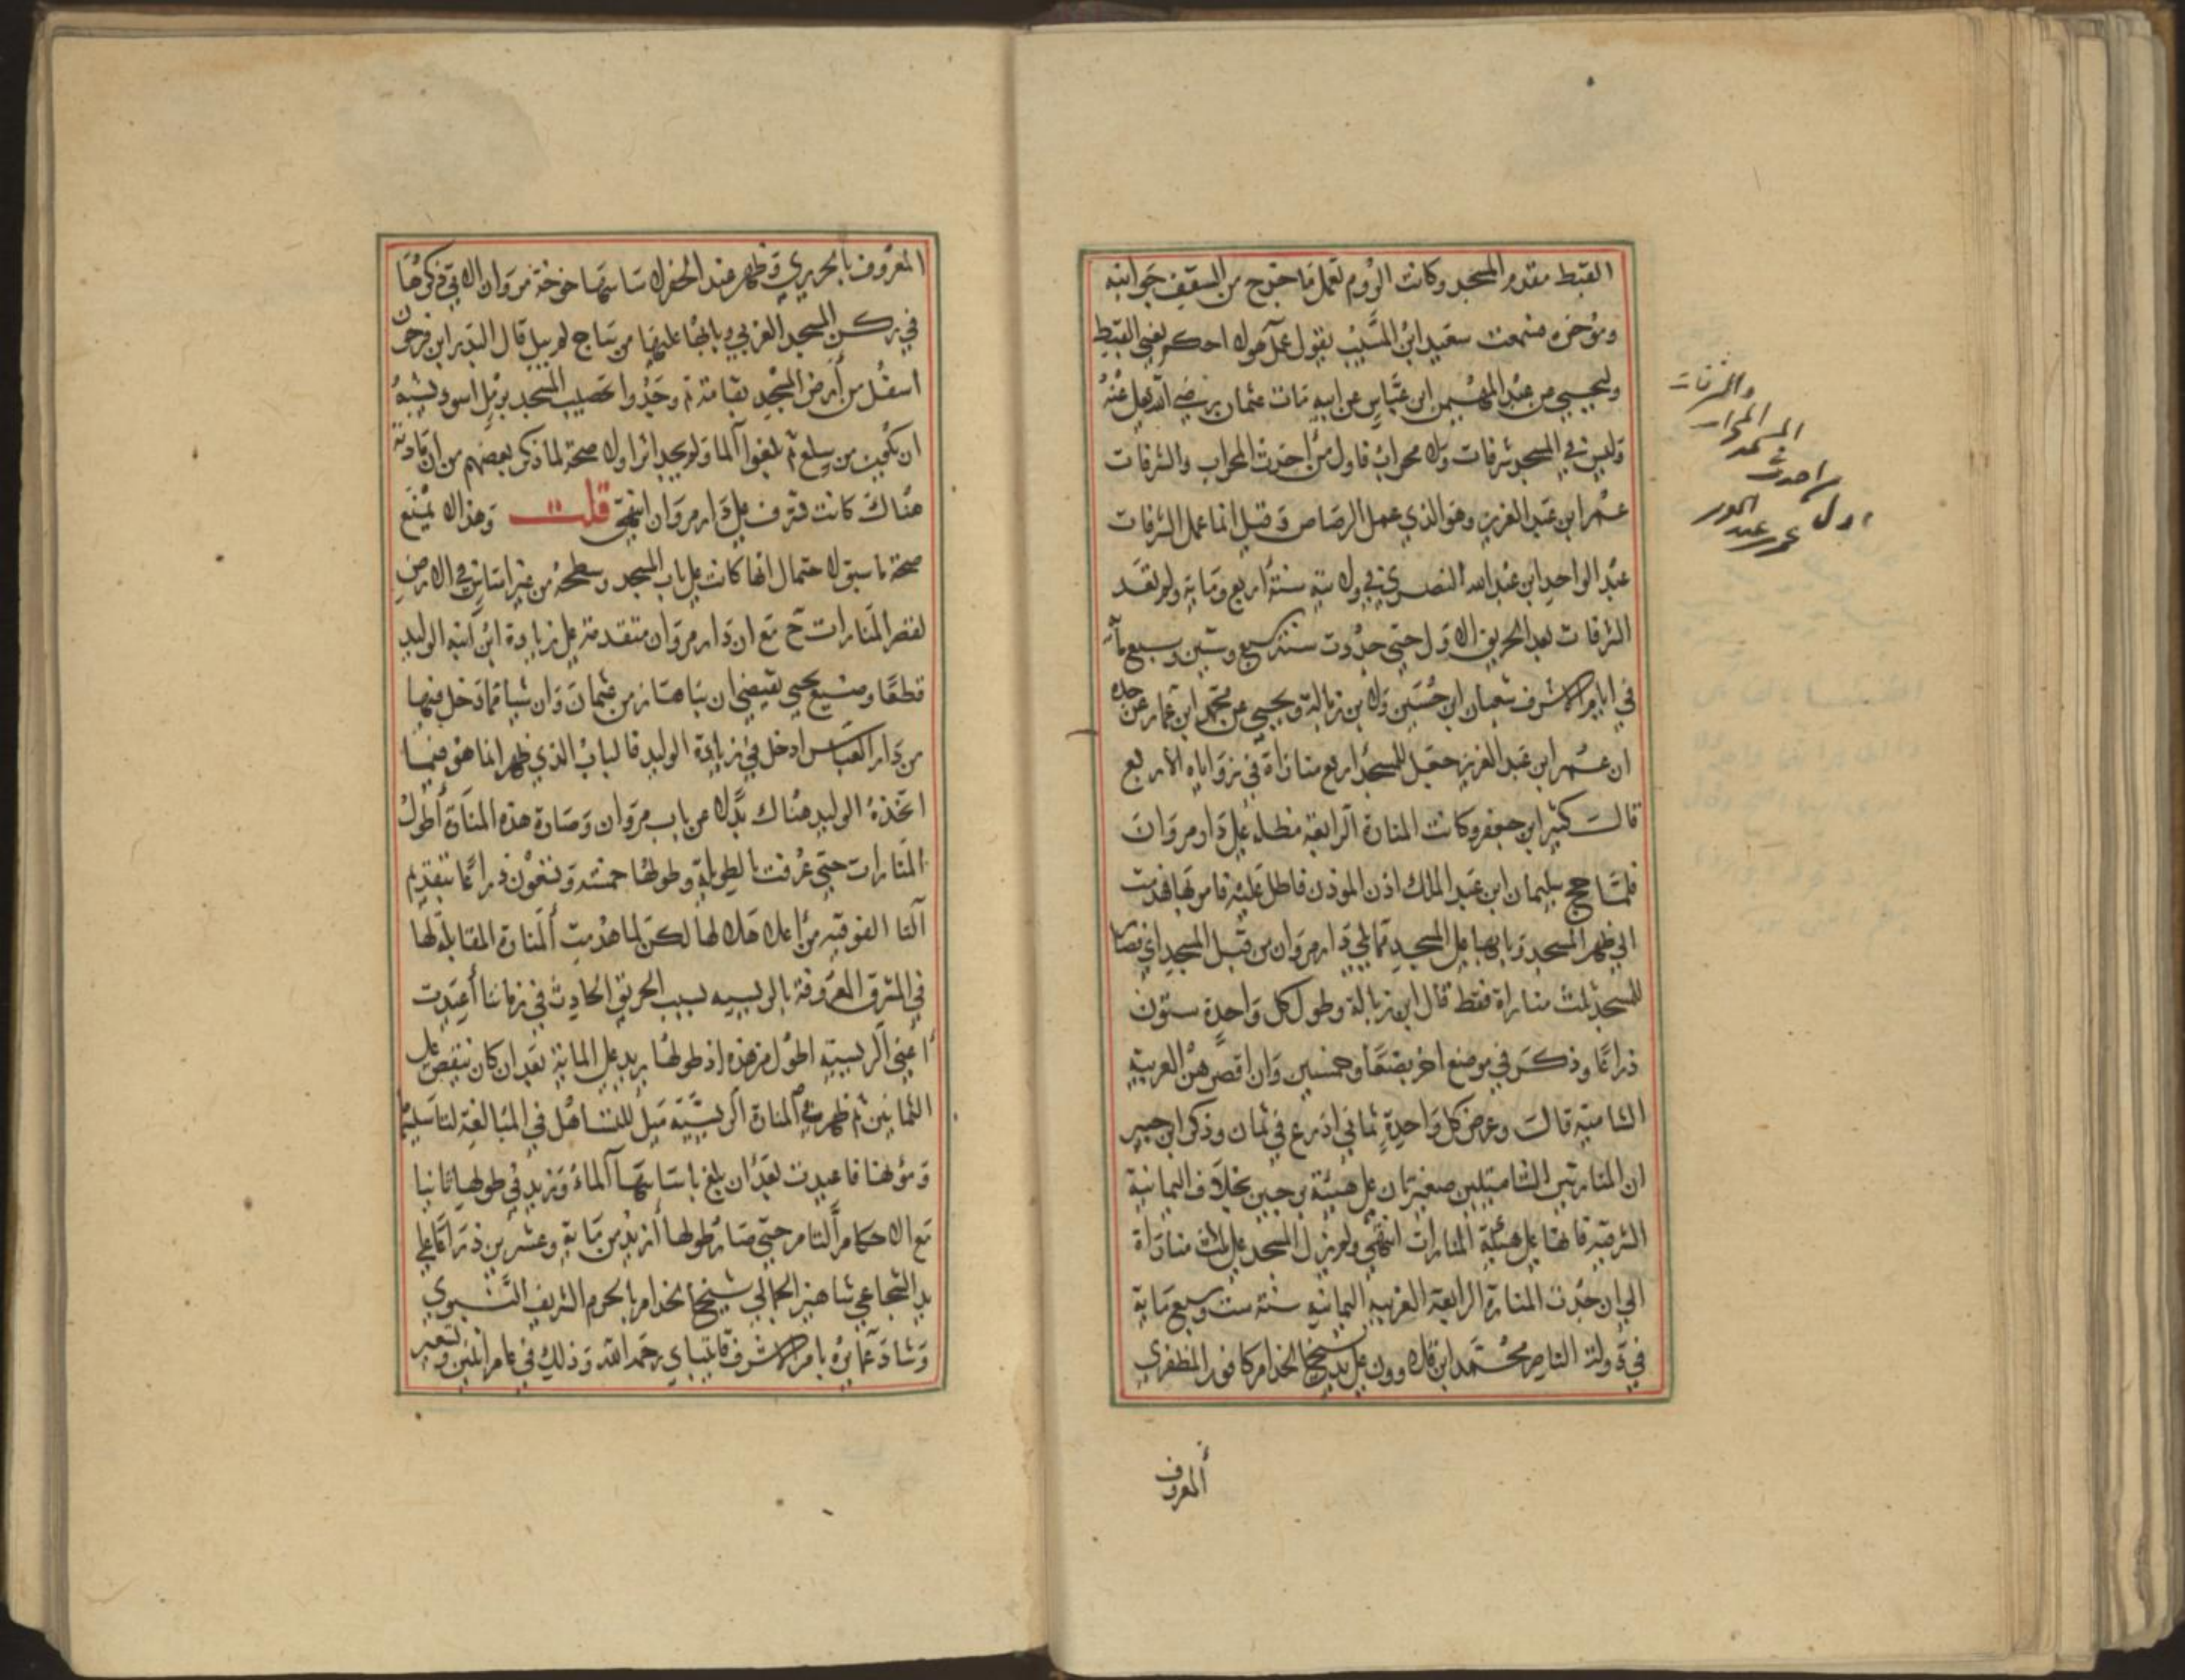 القبط مقدم المسجد وكانت الروم تعمل ما خرج من السقف جوانبه
ومؤخره فسمعت سعيد ابن المسيب يقول عمل هولا احكم يعني القبط
وليحيي عن عبد المهيمن ابن عباس عن ابيه مات عثمان رضي الله عنه
وليس في المسجد شرفات ولا محراب فاول من احدث المحراب والشرفات
عمر ابن عبد العزيز وهو الذي عمل الرصاص وقيل انما عمل الشرفات
عبد الواحد ابن عبد الله النصري في ولايته سنة اربع وماية ولم تعد
الشرفات بعد الحريق الاول حتي جددت سنة سبع وستين وسبع مأة
في ايام الاشرف شعبان ابن حسين ولابن زبالة ويحيي عن محمد ابن عمار عن جده
ان عمر ابن عبد العزيز جعل للمسجد اربع منارات في زواياه الاربع
قالت كثير ابن جعفر وكانت المنارة الرابعة مطلة علي دار مروان
فلما حج سليمان ابن عبد الملك اذن الموذن فاطل عليه فامر بها فهدمت
الي ظهر المسجد وبابها علي المسجد مما يلي دار مروان من قبل المسجد اي فصار
للمسجد ثلث منارات فقط قال ابن زبالة وطول كل واحدة ستون
ذراعا وذكر في موضع اخر بضعا وخمسين وان اقصرهن الغربية
الشامية قالت وعرض كل واحدة ثماني اذرع في ثمان وذكر ابن جبير
ان المنارتين الشاميتين صغيرتان علي هيئة برجين بخلاف اليمانية
الشرقية فانها علي هيئة المنارات انتهي ولم يزل المسجد علي ثلاث منارات
الي ان جددت المنارة الرابعة الغربيه اليمانيه سنة ست وسبع ماية
في دولة الناصر محمد ابن قلاوون علي يد شيخ الخدام كافور المظفري
المعروف
والشرفات
المسجد المحراب
اول من احدث
عمر عبد
المعروف بالحريري وظهر عند الحفر لاساسها خوخة مروان الاتي ذكرها
في ركن المسجد الغربي وبابها عليها من ساج لم يبل قال البدر ابن فرحون
اسفل من ارض المسجد بقامة ثم وجدوا تحصيب المسجد برمل اسود يشبه
ان يكون من سلع ثم بلغوا الما ولم يجد اثرا ولا صحة لما ذكر بعضهم من ان مادنة
هناك كانت تشرف علي دار مروان انتهي قلت وهذا لا يمنع
صحة ما سبق لاحتمال انها كانت علي باب المسجد وسطحه من غير اساس في الارض
لقصر المنارات ح مع ان دار مروان متقدمة علي زيادة ابن ابنه الوليد
قطعا وصنيع يحيي يقتضي ان بناها زمن عثمان وان شيا مما دخل فيها
من دار العباس ادخل في زيادة الوليد فالباب الذي ظهر انما هو فيما
اتخذه الوليد هناك بدلا عن باب مروان وصارة هذه المنارة اطول
المنارات حتي عرفت بالطويلة وطولها خمسة وتسعون ذراعا بتقديم
التا الفوقيه من اعلا هلالها لكن لما هدمت المنارة المقابلة لها
في المشرق المعروفة بالريسيه بسبب الحريق الحادث في زماننا اعيدت
اعني الريسية اطول من هذه اذ طولها يزيد علي الماية بعد ان كان ينقص علي
الثمانين ثم ظهر في المنارة الريسية ميل للتساهل في المبالغة لتاسيسها
ومؤنها فاعيدت بعد ان بلغ باساسها الماء وزيد في طولها ثانيا
مع الاحكام التام حتي صار طولها ازيد من ماية وعشرين ذراعا علي
يد الشجاعي شاهين الجمالي شيخ الخدام بالحرم الشريف النبوي
وشاد عمايره بامر الاشرف قايتباي رحمه الله وذلك في عام اثنين وتسعين